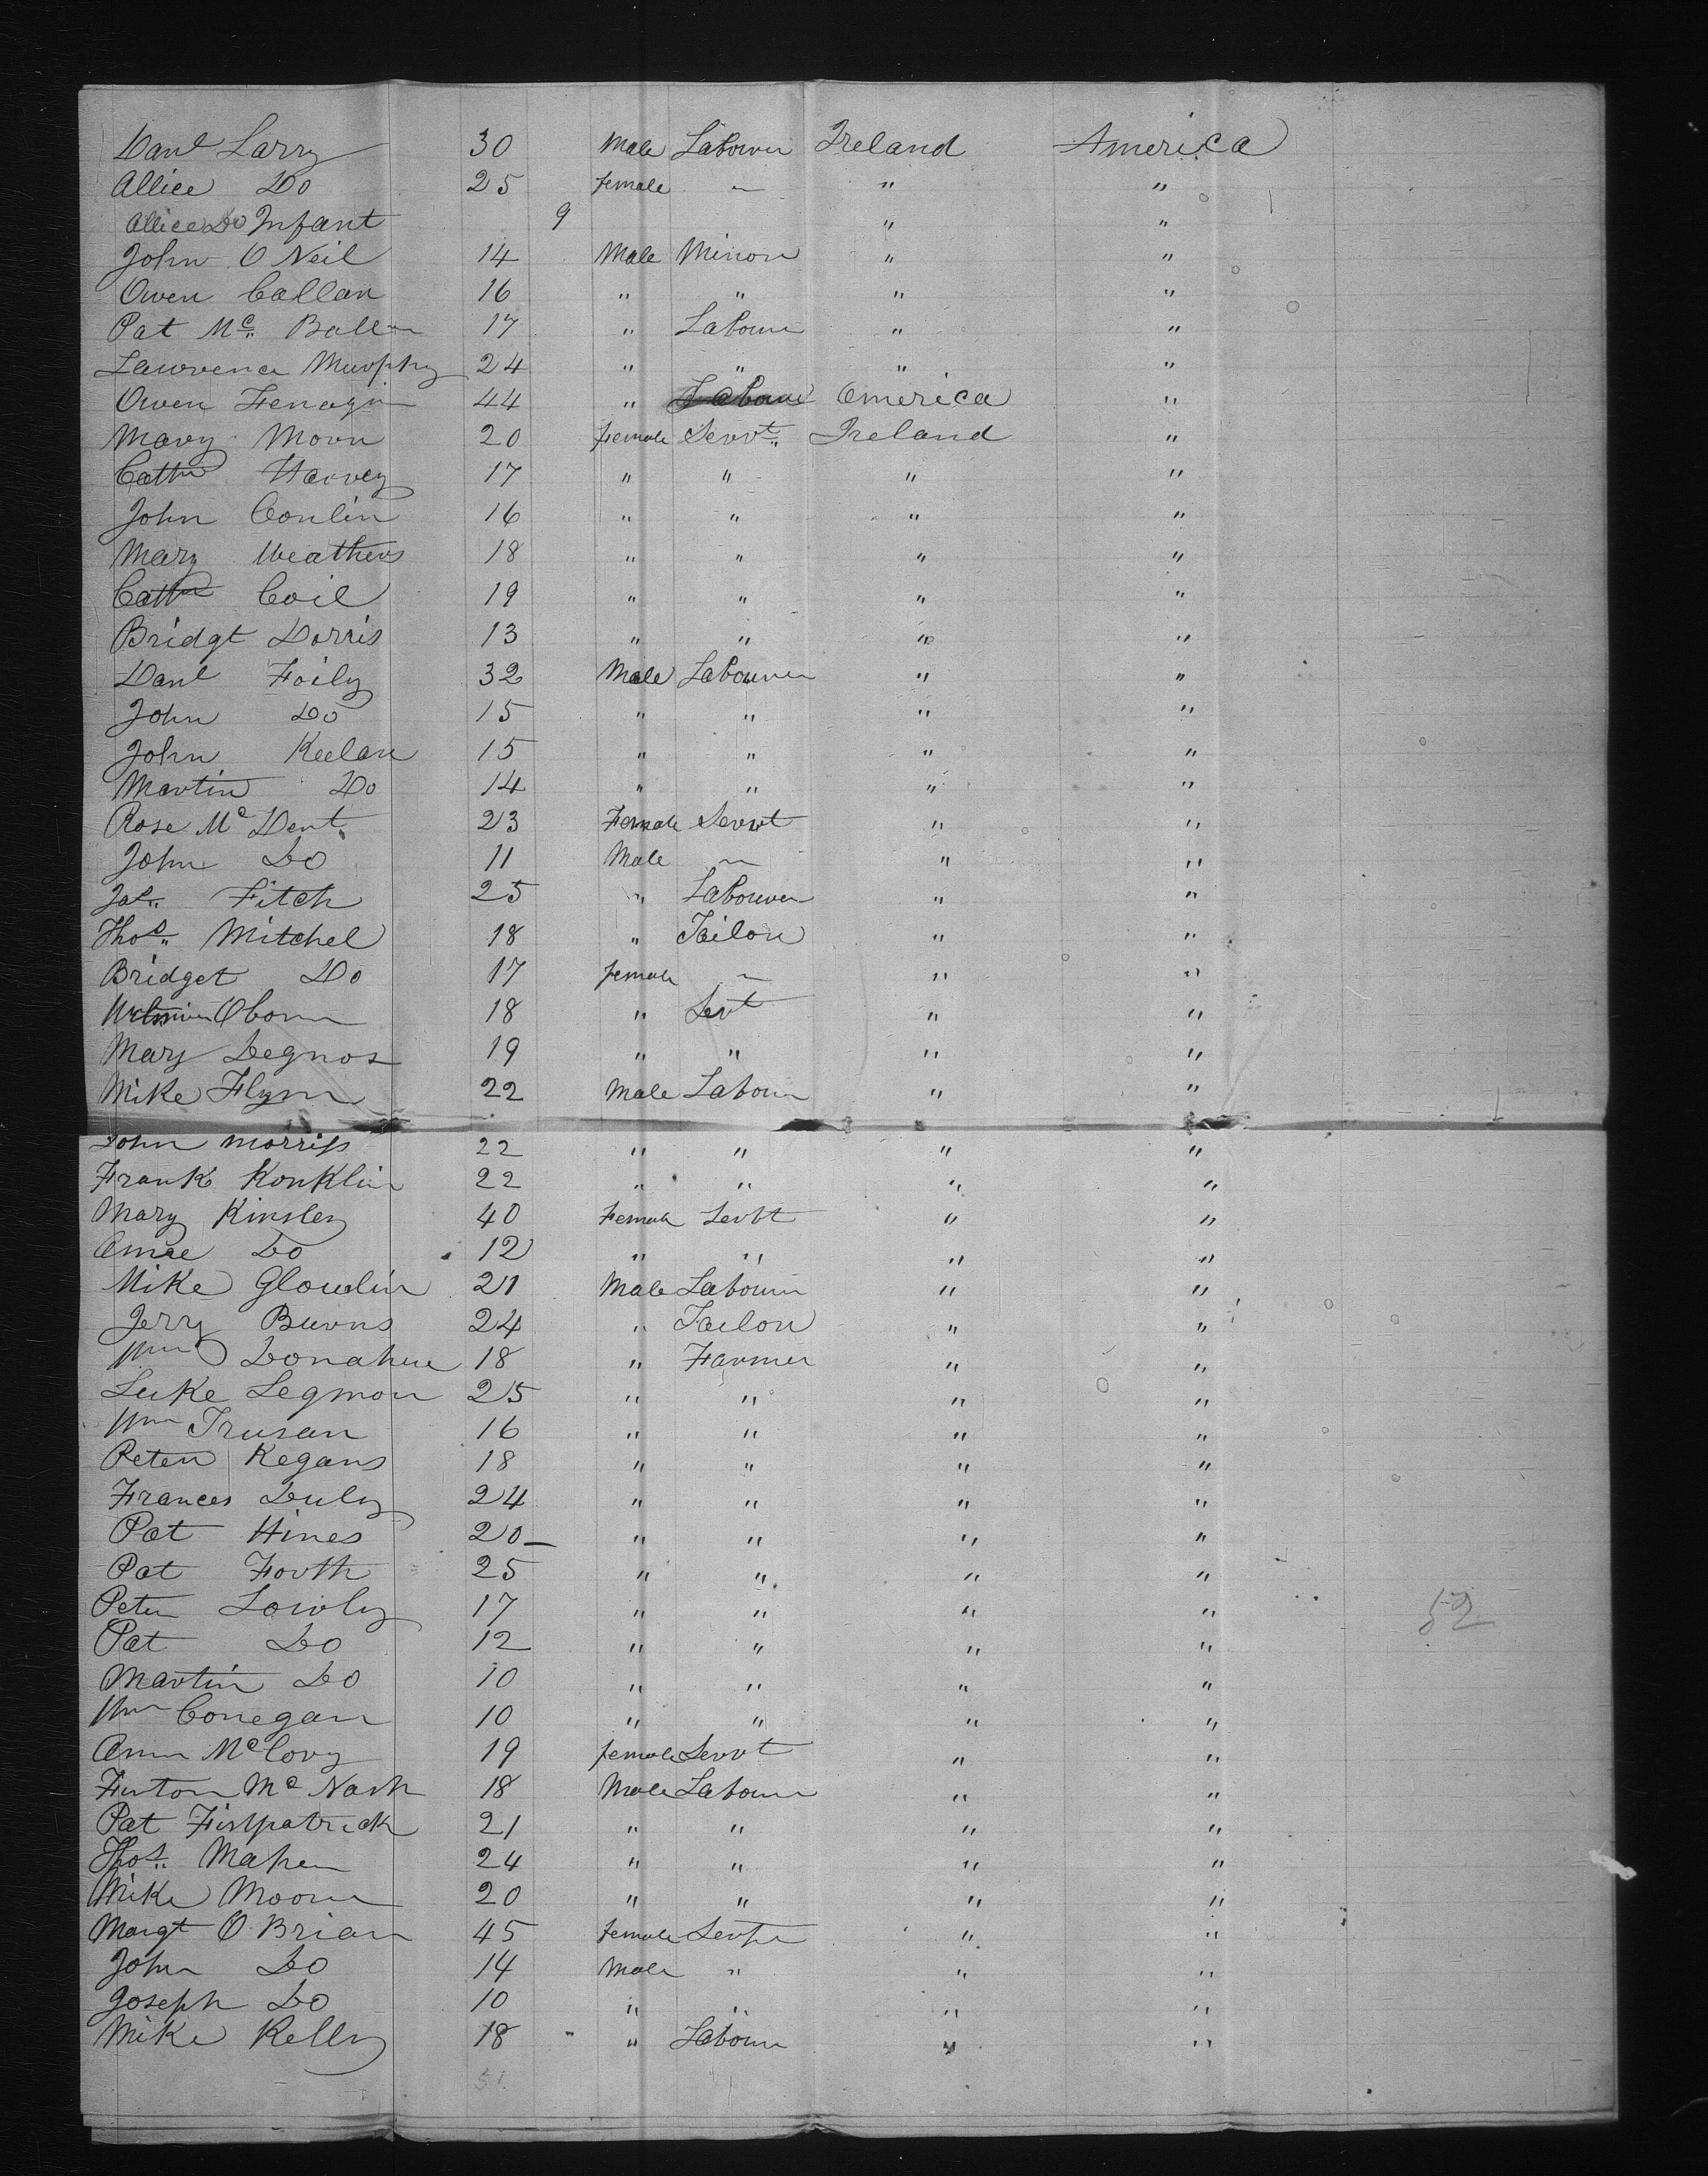 Danl Larry 30 Male Labourer Ireland America
Allice Do 25 female — " "
Allice Do Infant 9 " "
John O Neil 14 Male Minor " "
Owen Callan 16 " " " "
Pat Mc 17 " Labourer " "
Lawrence Murphy 24 " " " "
Owen Fenagin 44 " Labour America "
Mary Morn 20 female Servt Ireland "
Cathn Harvey 17 " " " "
John Conlin 16 " " " "
Mary Weathers 18 " " " "
Cathn Coil 19 " " " "
Bridgt Dorris 13 " " " "
Danl Foily 32 Male Labourer " "
John Do 15 " " " "
John Keelan 15 " " " "
Martin Do 14 " " " "
Rose Mc Dent 23 Female Servt " "
John Do 11 Male — " "
Fitch 25 " Labourer " "
Thos Mitchel 18 " Tailor " "
Bridget Do 17 female — " "
18 " Sevt " "
Mary Degnos 19 " " " "
Mike Flynn 22 Male Labour " "
John Morriss 22 " " " "
Frank Konklin 22 " " " "
Mary Kinsley 40 Female Servt " "
Do 12 " " " "
Mike Gloudin 21 Male Labourer " "
Jerry Burns 24 " Tailor " "
Wm Donahue 18 " Farmer " "
Luke Legmon 25 " " " "
Wm Trusan 16 " " " "
Peter Kegans 18 " " " "
Frances Duly 24 " " " "
Pat Hines 20 — " " " "
Pat Forth 25 " " " "
Peter Lowly 17 " " " " 52
Pat Do 12 " " " "
Martin Do 10 " " " "
Wm Conegan 10 " " " "
Ann McCovy 19 female Servt " "
Mc Nash 18 Male Labour " "
Pat Fistpatrick 21 " " " "
Thos Maher 24 " " " "
Mike Moore 20 " " " "
Margt O Brian 45 female " "
John Do 14 Male " " "
Joseph Do 10 " " " "
Mike Kelly 18 " Labour " "
51